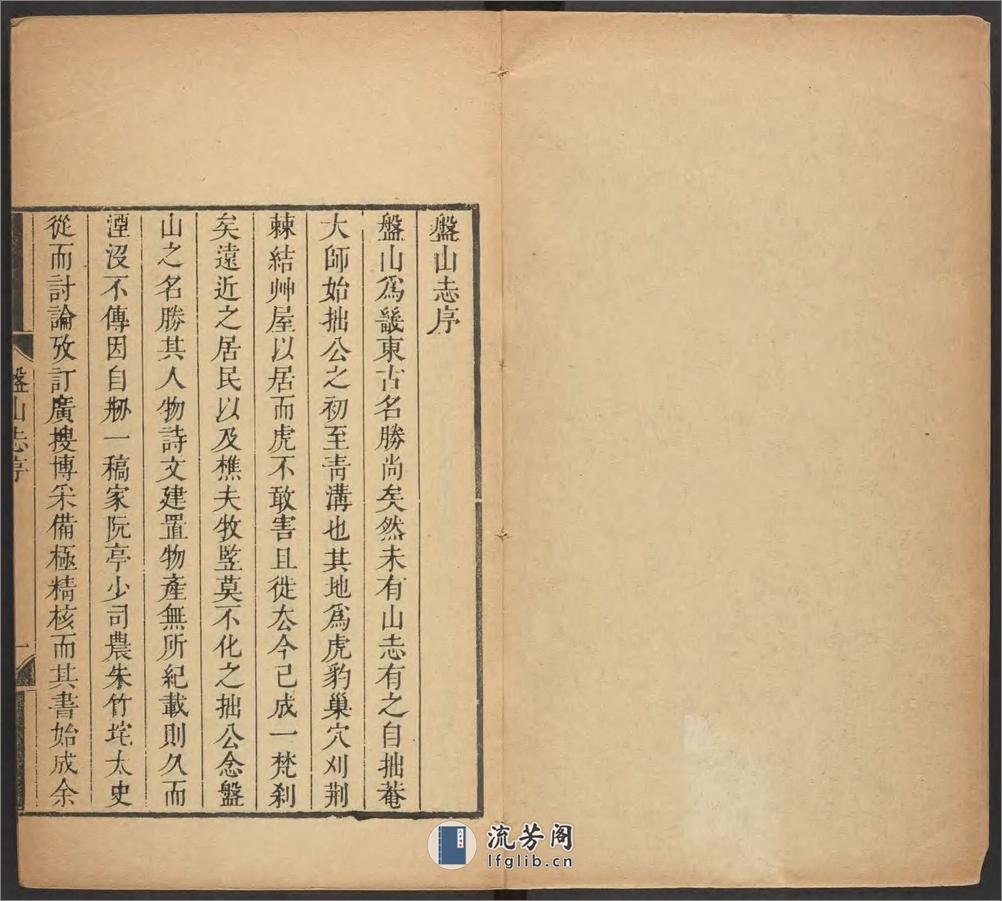 盤山志序
盤山爲畿東古名勝尚矣然未有山志有之自拙菴
大師始拙公之初至靑溝也其地爲虎豹巢穴刈荆
棘結艸屋以居而虎不敢害且徙去今已成一梵刹
矣遠近之居民以及樵夫牧竪莫不化之拙公念盤
山之名勝其人物詩文建置物產無所紀載則久而
湮沒不傳因自刱一稿家阮亭少司農朱竹垞太史
從而討論攷訂廣搜博采備極精核而其書始成余
盤山志序
一
流芳阁
lfglib.cn